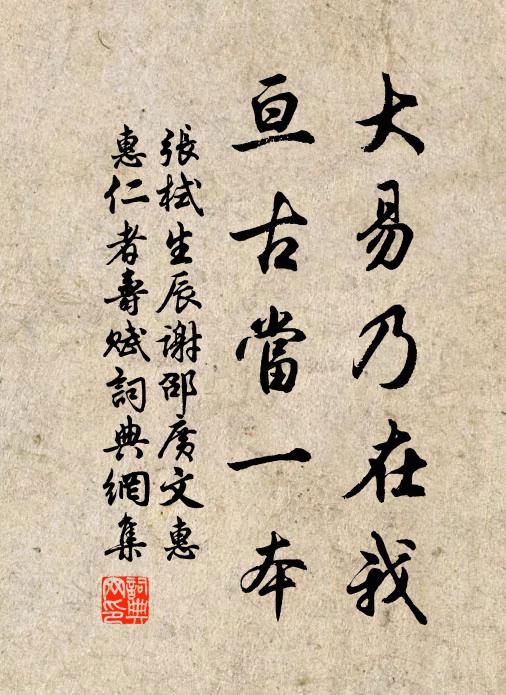 大易乃在我
亘古當一本
張栻生辰謝邵廣文惠
惠仁者壽賦詞典網集
詞典网印